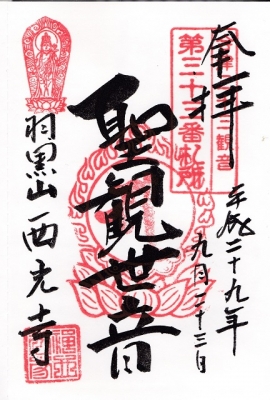 奉拝
第三十三番札所
平成二十九年
九月二十三日
聖観世音
羽黒山西光寺